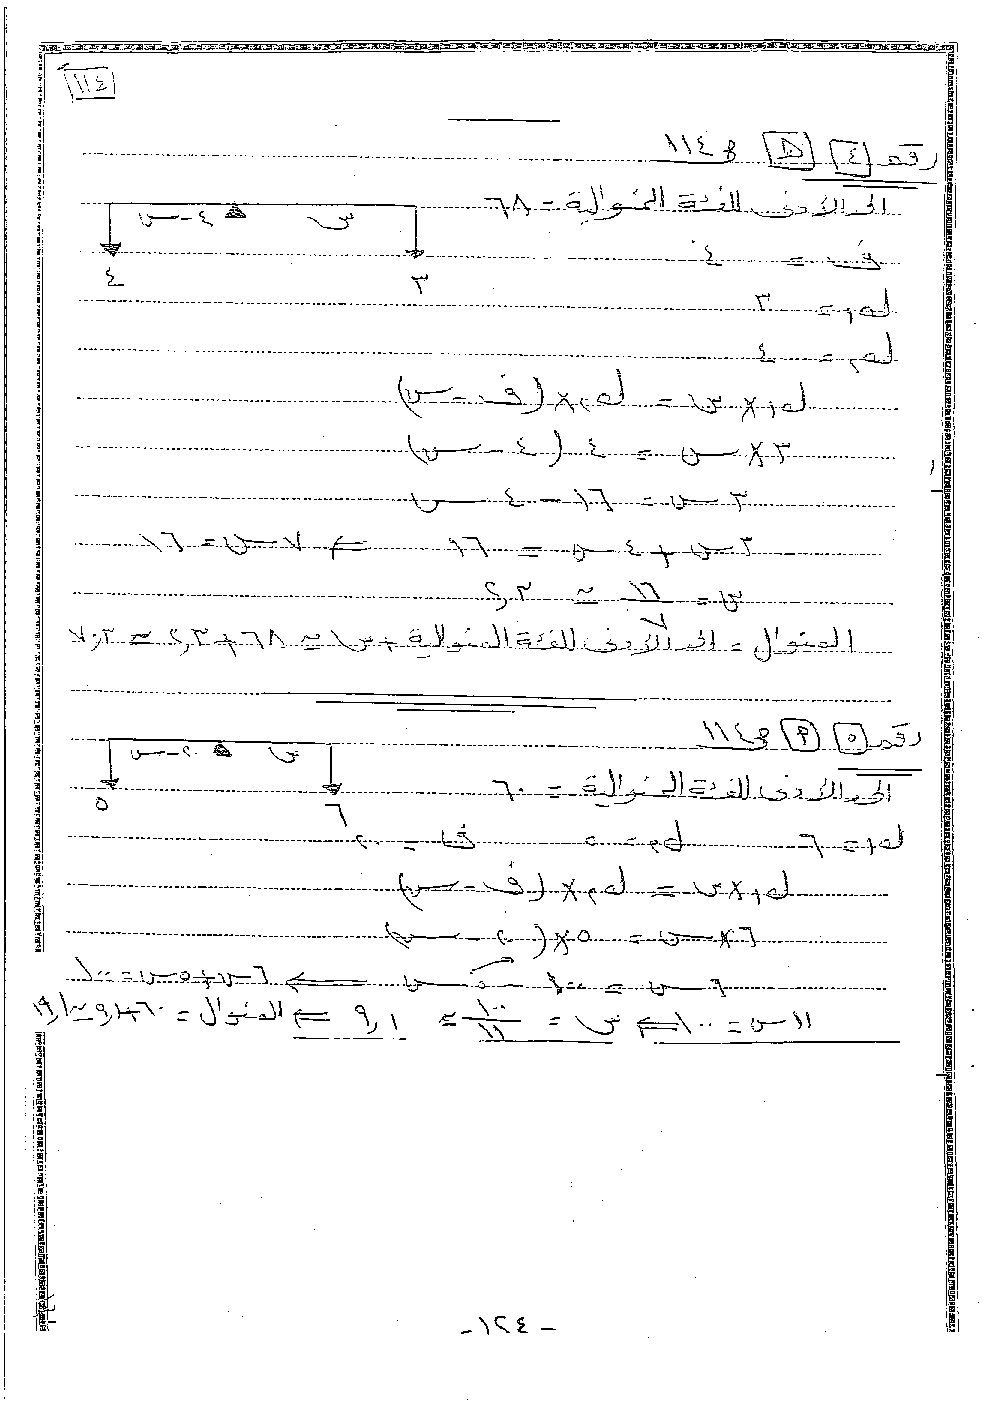 ١١٤
رقم ٤ ص ١١٤
الحد الأدنى للفئة المنوالية = ٦٨
٤ - س س
ف = ٤
٤ ٣
ك١ = ٣
ك٢ = ٤
ك١ × س = ك٢ × (ف - س)
٣ × س = ٤ (٤ - س)
٣ س = ١٦ - ٤ س
٣ س + ٤ س = ١٦ ⇐ ٧ س = ١٦
س = ١٦/٧ ≃ ٢,٣
المنوال = الحد الأدنى للفئة المنوالية + س ≃ ٦٨ + ٢,٣ ≃ ٧٠,٣
رقم ٥ ص ١١٤
٢٠ - س س
الحد الأدنى للفئة المنوالية = ٦٠
٥ ٦
ك١ = ٦ ك٢ = ٥ ف = ٢٠
ك١ × س = ك٢ × (ف - س)
٦ × س = ٥ × (٢٠ - س)
٦ س = ١٠٠ - ٥ س ⇐ ٦ س + ٥ س = ١٠٠
١١ س = ١٠٠ ⇐ س = ١٠٠/١١ ≃ ٩,١ ⇐ المنوال = ٦٠ + ٩,١ ≃ ٦٩,١
- ١٢٤ -